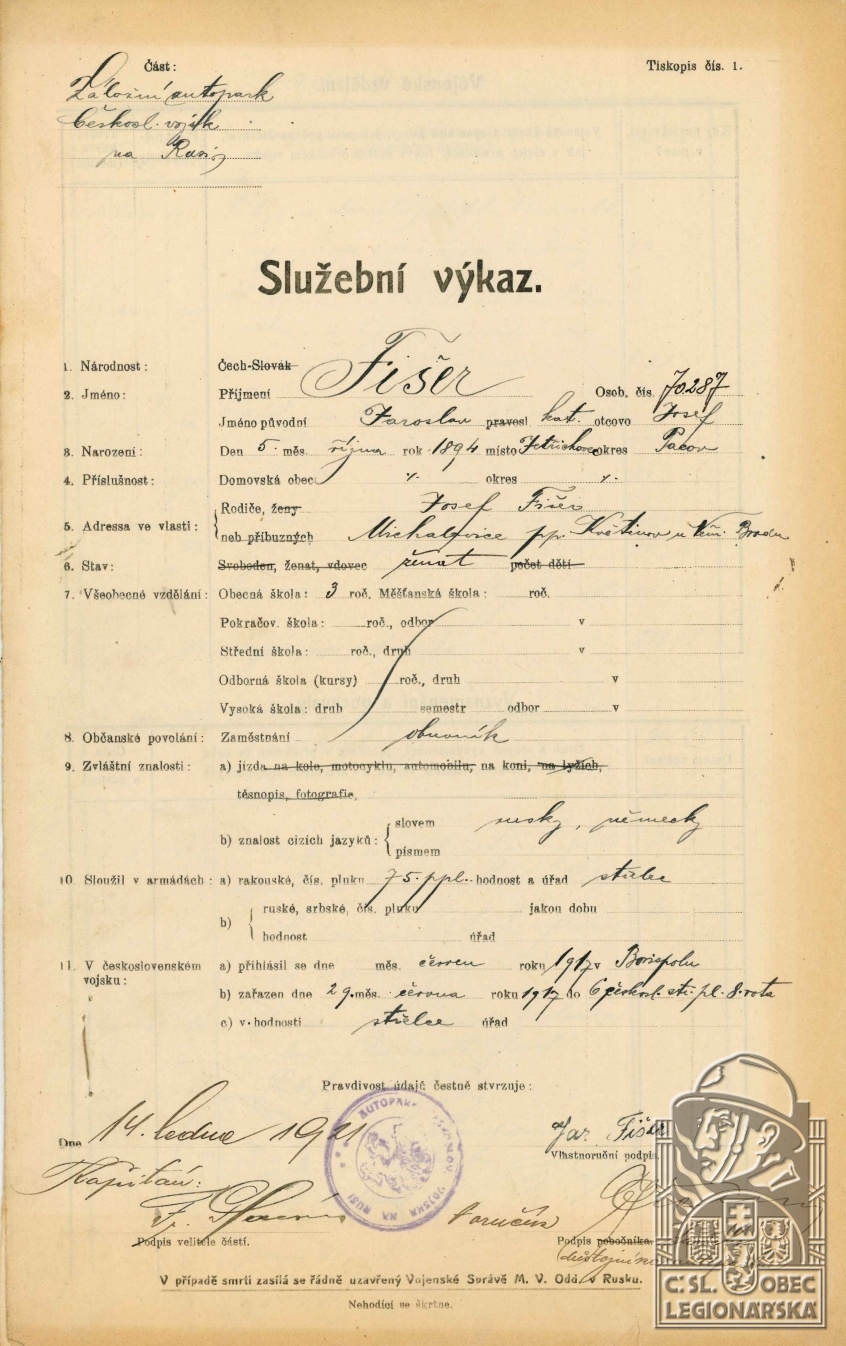 Část:
Tiskopis čís. 1.
Záložní autopark
Českosl. vojsk
na Rusi
Služební výkaz.
1. Národnost: Čech-Slovák
2. Jméno: Příjmení Fišer Osob. čís. 70287
Jméno původní Jaroslav pravosl kat. otcovo Josef
3. Narození: Den 5. měs. října rok 1894 místo Jetřichovec okres Pacov
4. Příslušnost: Domovská obec ⁒ okres ⁒
Rodiče, ženy Josef Fišer
5. Adressa ve vlasti:
neb příbuzných Michalovice pp. Květinov u Něm. Brodu
6. Stav: Svoboden, ženat, vdovec ženat počet dětí
7. Všeobecné vzdělání: Obecná škola: 3 roč. Měšťanská škola: roč.
Pokračov. škola: roč., odbor v
Střední škola: roč., druh v
Odborná škola (kursy) roč., druh v
Vysoká škola: druh semestr odbor v
8. Občanské povolání: Zaměstnání obuvník
9. Zvláštní znalosti: a) jízda na kole, motocyklu, automobilu, na koni, na lyžích,
těsnopis, fotografie,
slovem rusky, německy
b) znalost cizích jazyků:
písmem
10. Sloužil v armádách: a) rakouské, čís. pluku 75. ppl. hodnost a úřad střelec
ruské, srbské, čís. pluku jakou dobu
b)
hodnost úřad
11. V československém vojsku: a) přihlásil se dne měs. červen roku 1917 v Borispolu
b) zařazen dne 29. měs. června roku 1917 do 6 českosl. stř. pl. 8. rota
c) v hodnosti střelce úřad
Pravdivost údajů čestně stvrzuje:
Dne 14. ledna 1921
Jar. Fišer
Vlastnoruční podpis.
AUTOPARK VOJSKA NA RUSI
Kapitán:
F.
Poručík
Podpis velitele částí.
Podpis pobočníka.
důstojníka
V případě smrti zasílá se řádně uzavřený Vojenské Správě M. V. Odd. v Rusku.
Nehodící se škrtne.
Č. SL. OBEC
LEGIONÁŘSKÁ